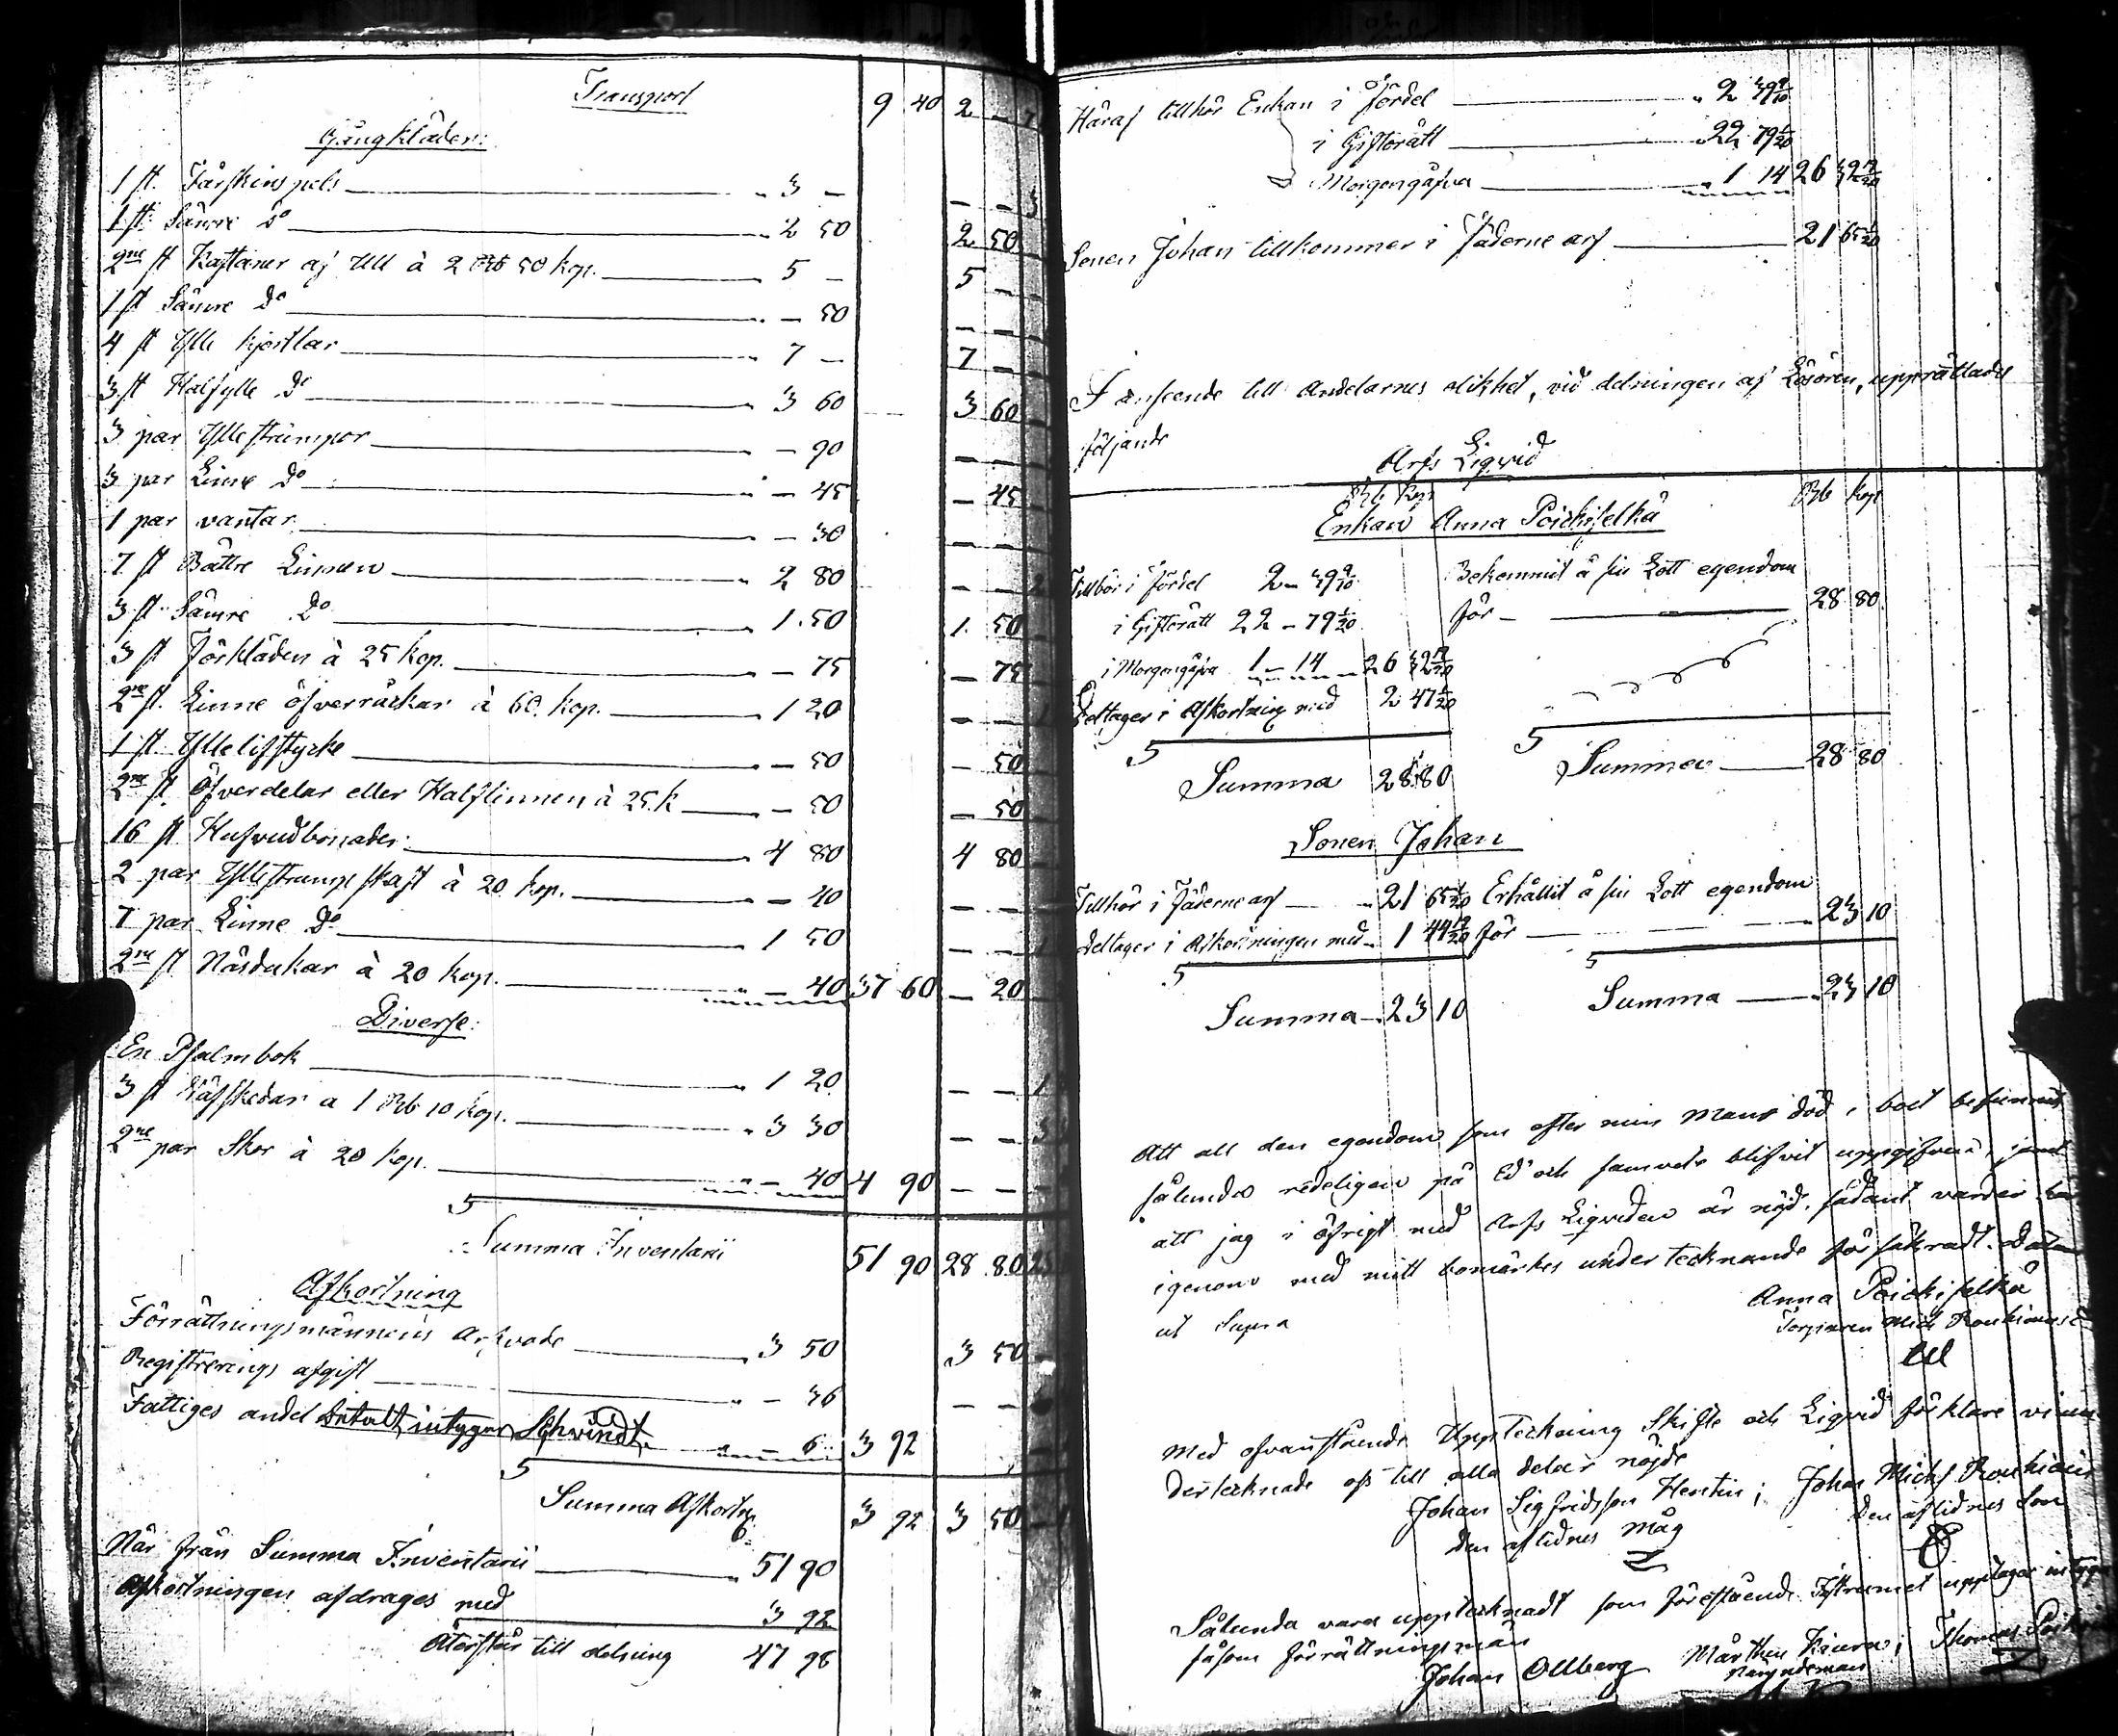 Transport 9 40 2 -
Gångkläder:
1 st. Fårskins pels 3 - - -
1 st. Sämre Do 2 50 2 50
2ne st Kaftaner af Ull à 2 Rb 50 kop. 5 - 5 -
1 st Sämre Do - 50 - -
4 st Ylle kjortlar 7 - 7 -
3 st Halfylle Do 3 60 3 60
3 par Yllestrumpor - 90 - -
3 par Linne Do - 45 - 45
1 par vantar - 30 - -
7 st Bättre Linnen 2 80 - -
3 st Sämre Do 1.50 1. 50
3 st Förkläden à 25 kop. - 75 - 75
2ne st. Linne öfverräckar à 60. kop. 1 20 - -
1 st. Ylle lifstycke - 50 - 50
2ne st Öfverdelar eller Halflinnen à 25. k - 50 - 50
16 st Hufvudbonader 4 80 4 80
2 par Yllestrumpskaft à 20 kop. - 40 - -
7 par Linne Do 1 50 - -
2ne st Näsdukar à 20 kop. - 40 37 60 - 20
Diverse:
En Psalmbok 1 20 - -
3 st Räfskedar a 1 Rb 10 kop. 3 30 - -
2ne par Skor à 20 kop. - 40 4 90 - -
S Summa Inventarii 51 90 28 80
Afkortning
Förrättningsmännens Arfvode 3 50 3 50
Registrerings afgift - 36 - -
Fattiges andel betalt, intygar Schvindt. - 6 3 92
S Summa Afkortn 3 92 3 50
När från Summa Inventarii 51 90
Afkortningen afdrages med 3 92
Återstår till delning 47 98
Häraf tillhör Enkan i Fördel 2 49 9/10
i Giftorätt 22 79 1/20
Morgongåfva 1 14 26 32 19/20
Sonen Johan tillkommer i Fäderne arf 21 65 1/20
I anseende till Andelarnes olikhet, vid delningen af Lösören, upprättades
följande
Arfs Liqvid
Rb Kop Rb Kop
Enkan Anna Poickiselkä
Tillhör i Fördel 2 - 39 9/10 Bekommit å sin Lott egendom
i Giftorätt 22 - 79 1/20 för 28 80
i Morgongåfva 1 - 14 26 32 19/20
Deltager i Afkortning med 2 47 1/20
S Summa 28 80 S Summa 28 80
Sonen Johan
Tillhör i Fäderne arf 21 65 1/20 Erhållit å sin Lott egendom
Deltager i Afkortningen med 1 44 19/20 för 23 10
S Summa 23 10 S Summa 23 10
Att all den egendom som efter min Mans död i boet befunnits
sålunda redeligen på Ed och samvete blifvit uppgifven, jemt
att jag i öfrigt med Arfs Liqviden är nöjd, sådant varder här
igenom med mitt bomärkes undertecknande försäkradt. Datum
ut Supra Anna Poickiselkä
Torparen Mich
Med ofvanstående Uppteckning Skifte och Liqvid förklare vi un
dertecknade oss till alla delar nöjde
Johan Sigfridsson Hentin; Johan Michs
den aflidnes måg den aflidnes Son
Sålunda vara upptecknadt som förestående Instrument upptager intyga
såsom förrättningsmän
Johan Ollberg Mårthen Thomas
Nämndeman